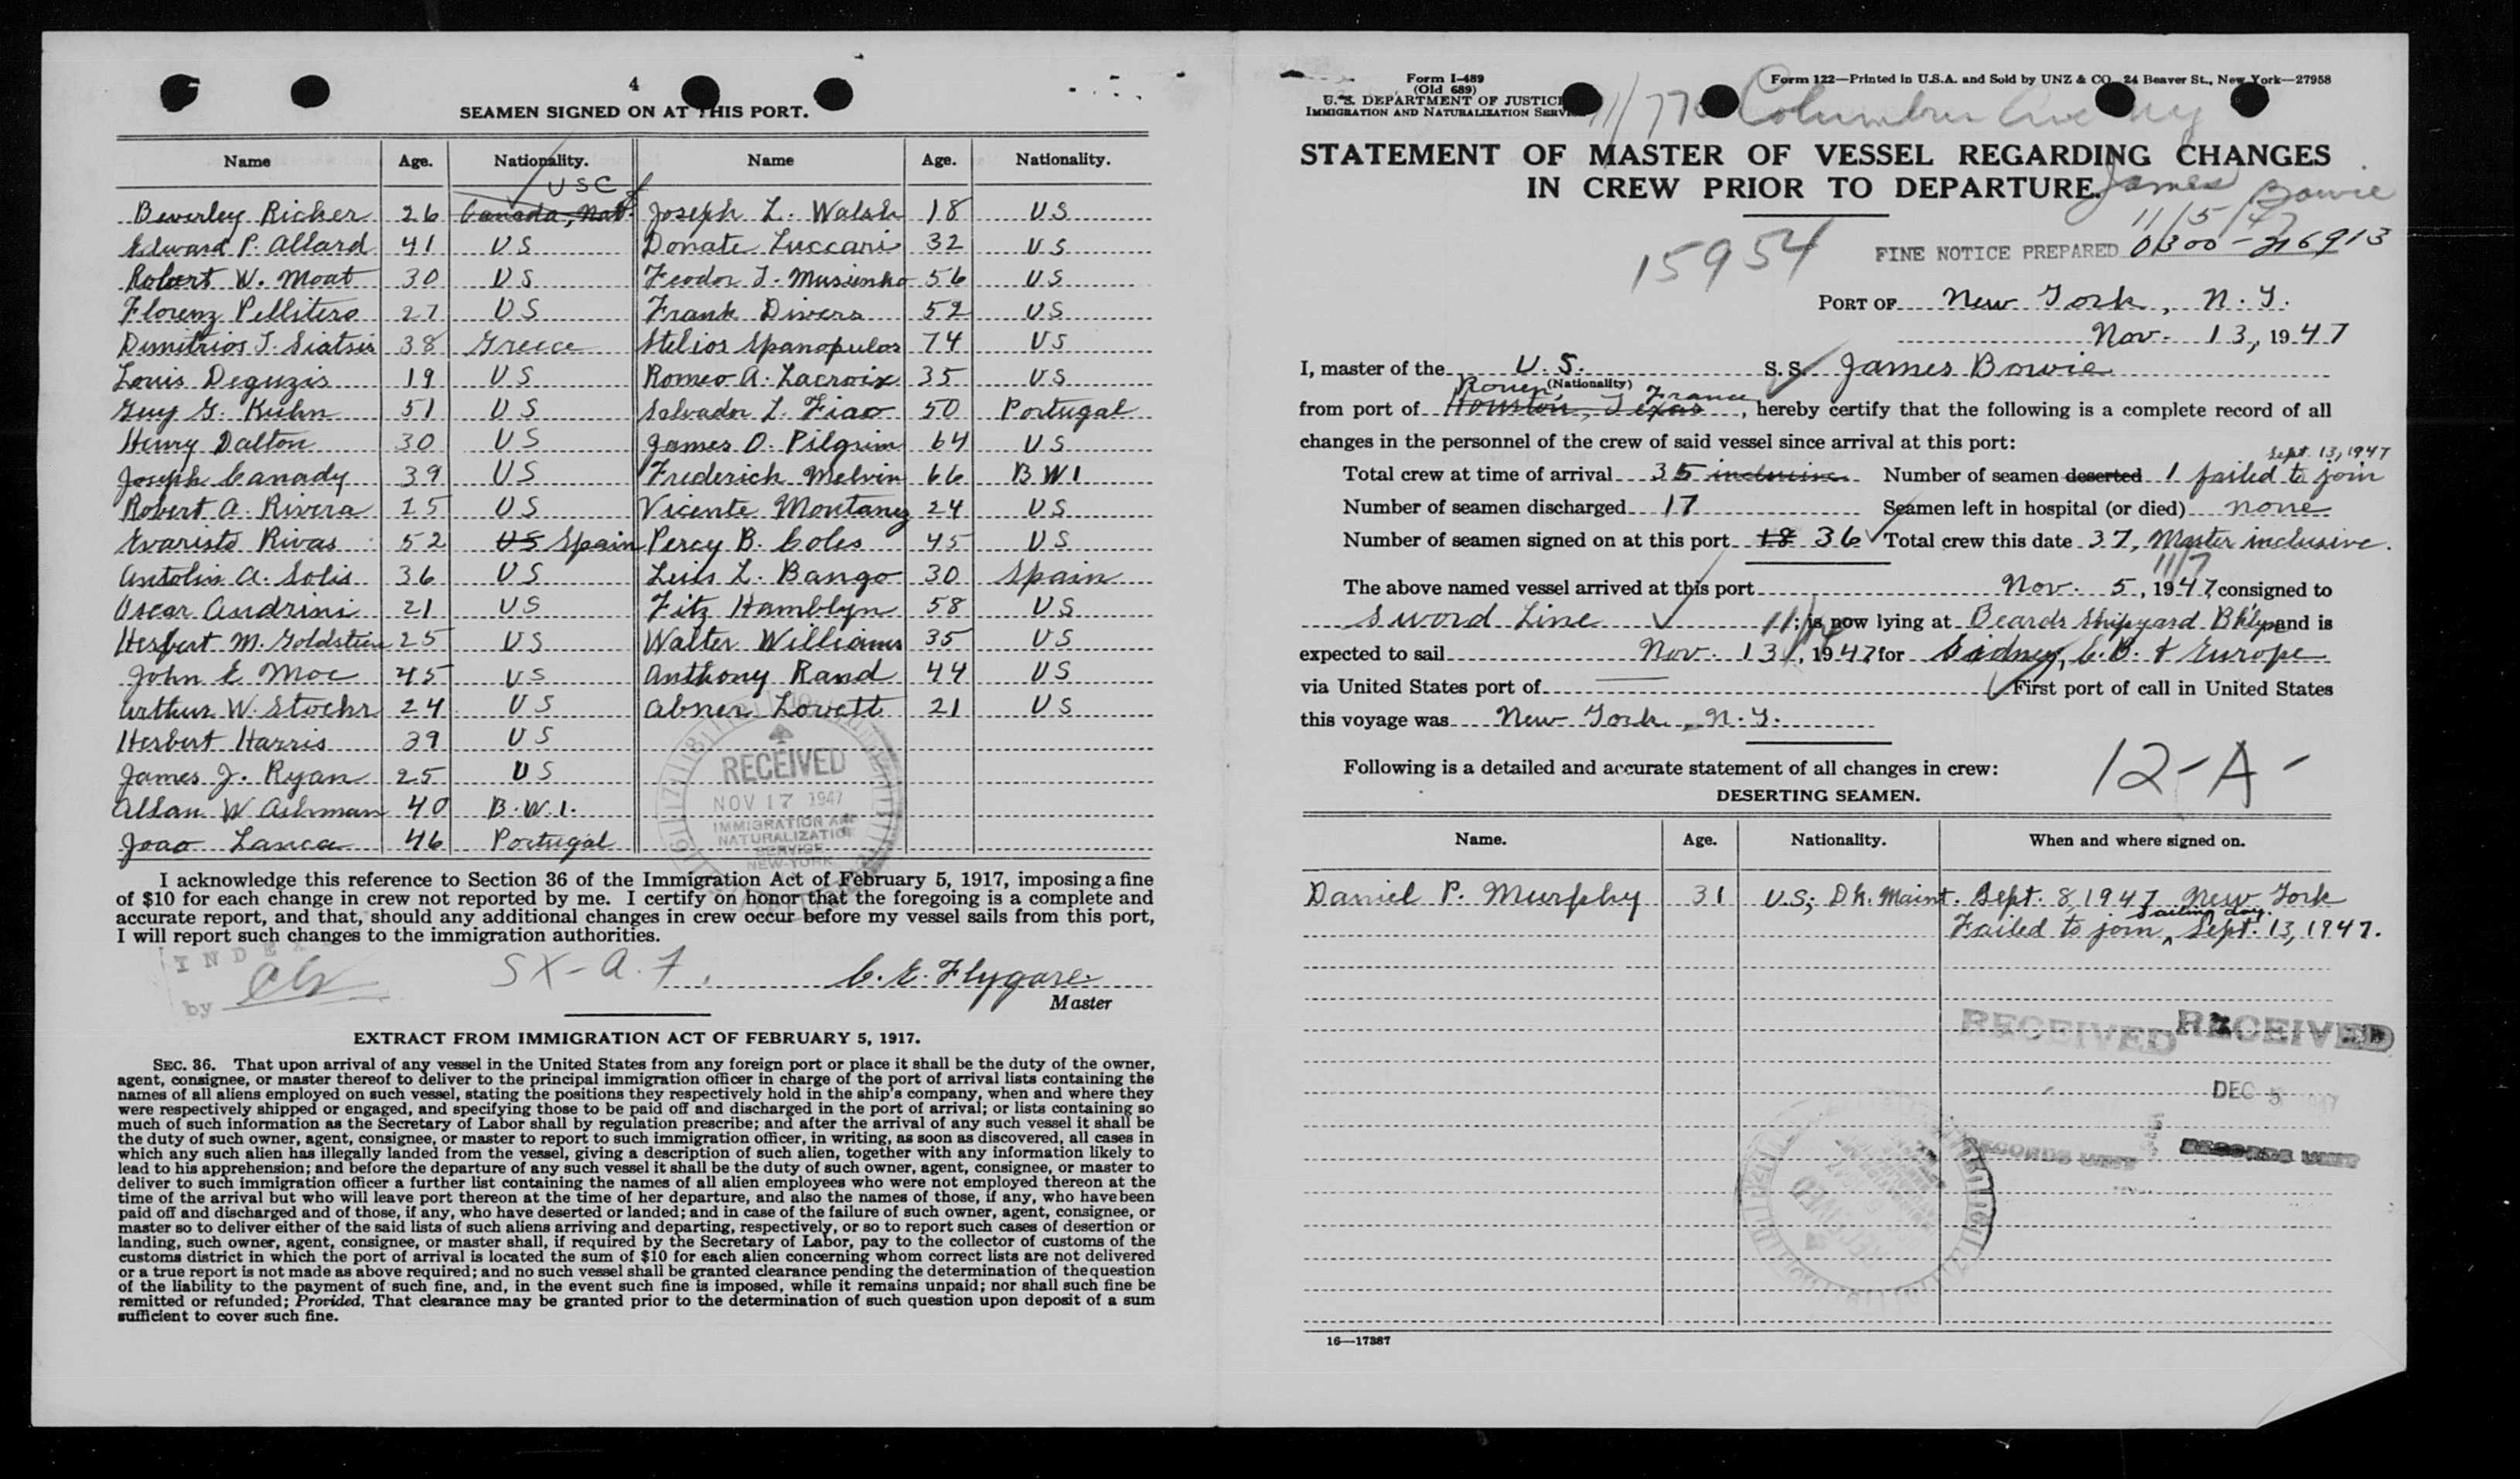 4
SEAMEN SIGNED ON AT THIS PORT.
Name Age. Nationality. Name Age. Nationality.
USC
Beverley Richer 26 Canada, Nat. Joseph L. Walsh 18 US
Edward P. Allard 41 US Donate Luccari 32 US
Robert W. Moat 30 US Feodor J. Musienko 56 US
Florenz Pellitero 27 US Frank Divers 52 US
Dimitrios J. Siatsis 38 Greece Stelios Spanopulos 74 US
Louis Deguzis 19 US Romeo A. Lacroix 35 US
Guy G. Kuhn 51 US Salvador L. Fiao 50 Portugal
Henry Dalton 30 US James O. Pilgrim 64 US
Joseph Canady 39 US Frederick Melvin 66 BWI
Robert A. Rivera 25 US Vicente Montanez 24 US
Evaristo Rivas 52 US Spain Percy B. Coles 45 US
Antolin A. Solis 36 US Luis L. Bango 30 Spain
Oscar Andrini 21 US Fitz Hamblyn 58 US
Herbert M. Goldstein 25 US Walter Williams 35 US
John E Moe 45 US Anthony Rand 44 US
Arthur W. Stochr 24 US Abner Lovett 21 US
Herbert Harris 39 US
James J. Ryan 25 US
Allan W Ashman 40 B.W.I.
Joao Lanca 46 Portugal
RECEIVED
NOV 17 1947
IMMIGRATION AND
NATURALIZATION
SERVICE
NEW YORK
I acknowledge this reference to Section 36 of the Immigration Act of February 5, 1917, imposing a fine
of $10 for each change in crew not reported by me. I certify on honor that the foregoing is a complete and
accurate report, and that, should any additional changes in crew occur before my vessel sails from this port,
I will report such changes to the immigration authorities.
INDEX
by
SX-a.7. C. E. Flygare
Master
EXTRACT FROM IMMIGRATION ACT OF FEBRUARY 5, 1917.
SEC. 36. That upon arrival of any vessel in the United States from any foreign port or place it shall be the duty of the owner,
agent, consignee, or master thereof to deliver to the principal immigration officer in charge of the port of arrival lists containing the
names of all aliens employed on such vessel, stating the positions they respectively hold in the ship's company, when and where they
were respectively shipped or engaged, and specifying those to be paid off and discharged in the port of arrival; or lists containing so
much of such information as the Secretary of Labor shall by regulation prescribe; and after the arrival of any such vessel it shall be
the duty of such owner, agent, consignee, or master to report to such immigration officer, in writing, as soon as discovered, all cases in
which any such alien has illegally landed from the vessel, giving a description of such alien, together with any information likely to
lead to his apprehension; and before the departure of any such vessel it shall be the duty of such owner, agent, consignee, or master to
deliver to such immigration officer a further list containing the names of all alien employees who were not employed thereon at the
time of the arrival but who will leave port thereon at the time of her departure, and also the names of those, if any, who have been
paid off and discharged and of those, if any, who have deserted or landed; and in case of the failure of such owner, agent, consignee, or
master so to deliver either of the said lists of such aliens arriving and departing, respectively, or so to report such cases of desertion or
landing, such owner, agent, consignee, or master shall, if required by the Secretary of Labor, pay to the collector of customs of the
customs district in which the port of arrival is located the sum of $10 for each alien concerning whom correct lists are not delivered
or a true report is not made as above required; and no such vessel shall be granted clearance pending the determination of the question
of the liability to the payment of such fine, and, in the event such fine is imposed, while it remains unpaid; nor shall such fine be
remitted or refunded; Provided, That clearance may be granted prior to the determination of such question upon deposit of a sum
sufficient to cover such fine.
Form I-489
(Old 689)
U. S. DEPARTMENT OF JUSTICE
IMMIGRATION AND NATURALIZATION SERVICE
Form 122—Printed in U.S.A. and Sold by UNZ & CO. 24 Beaver St., New York—27958
STATEMENT OF MASTER OF VESSEL REGARDING CHANGES
IN CREW PRIOR TO DEPARTURE.
James Bowie
11/5/47
15954
FINE NOTICE PREPARED 0300-26913
PORT OF New York, N.Y.
Nov. 13, 1947
I, master of the U.S. S. S. James Bowie
(Nationality)
Rouen, France
from port of Houston, Texas, hereby certify that the following is a complete record of all
changes in the personnel of the crew of said vessel since arrival at this port:
Sept. 13, 1947
Total crew at time of arrival 35 inclusive Number of seamen deserted 1 failed to join
Number of seamen discharged 17 Seamen left in hospital (or died) none
Number of seamen signed on at this port 18 36 Total crew this date 37, Master inclusive.
11/7
The above named vessel arrived at this port Nov. 5, 1947 consigned to
Sword Line 11/14; is now lying at Beards Shipyard Bklyn and is
expected to sail Nov. 13, 1947 for Sidney, C.B. & Europe
via United States port of First port of call in United States
this voyage was New York, N.Y.
Following is a detailed and accurate statement of all changes in crew:
12-A-
DESERTING SEAMEN.
Name. Age. Nationality. When and where signed on.
Daniel P. Murphy 31 U.S; Dk. Maint. Sept. 8, 1947 New York
sailing day.
Failed to join Sept. 13, 1947.
RECEIVED RECEIVED
DEC 5 1947
RECORDS UNIT RECORDS UNIT
RECEIVED
16—17387